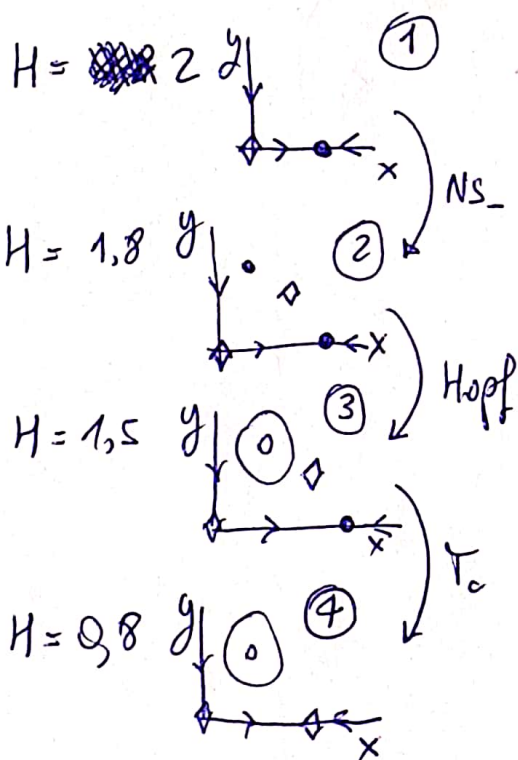 H = 2 y ①
x
NS_
H = 1,8 y ②
x
Hopf
H = 1,5 y ③
x
Tc
H = 0,8 y ④
x